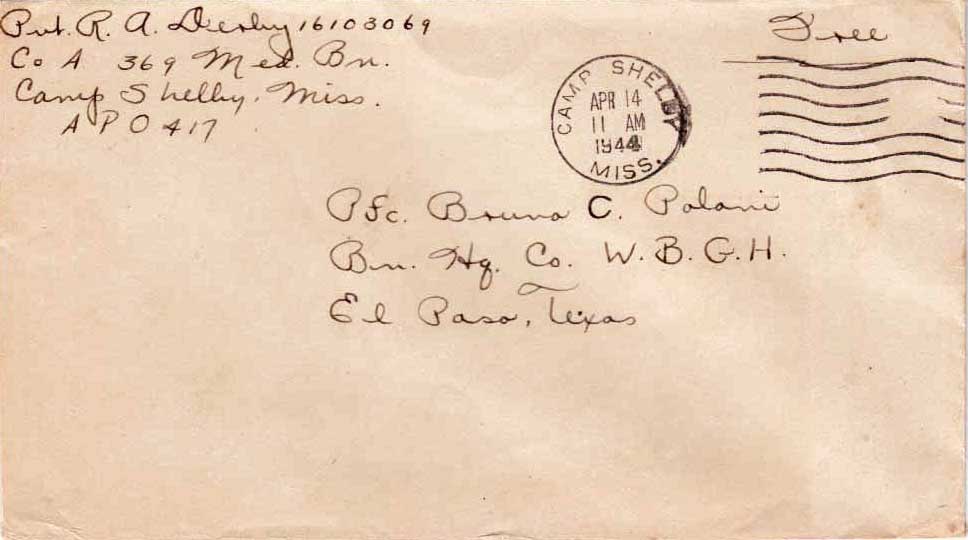 Pvt. R. A. Derby 16103069
Co A 369 Med. Bn.
Camp Shelby, Miss.
APO 417
Free
CAMP SHELBY
APR 14
11 AM
1944
MISS.
Pfc. Bruno C. Polani
Bn. Hq. Co. W.B.G.H.
El Paso, Texas